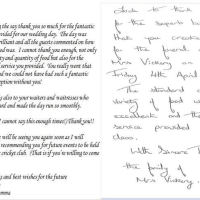 g the say thank you so much for the fantastic
ovided for our wedding day. The day was
illiant and all the guests commented on how
was. I cannot thank you enough, not only
ity and quantity of food but also for the
service you provided. You really went that
d we could not have had such a fantastic
eption without you!
g also to your waiters and waitresses who
ard and made the day run so smoothly.
cannot say this enough times!) Thank you!!
will be seeing you again soon as I will
recommending you for future events to be held
cricket club. (That is if you're willing to come
g and best wishes for the future
mma
to thank
for the superb b
that you created
for the funeral
Mrs Vickery on
Friday 4th April
The standard o
variety of food w
excellent and the
service provided
class.
With Sincere T
the family of
Mrs Vickery